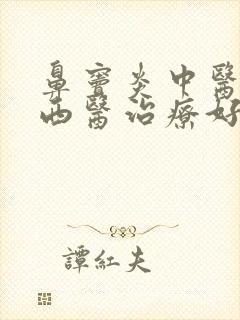 鼻竇炎中醫
西醫治療好
譚紅夫